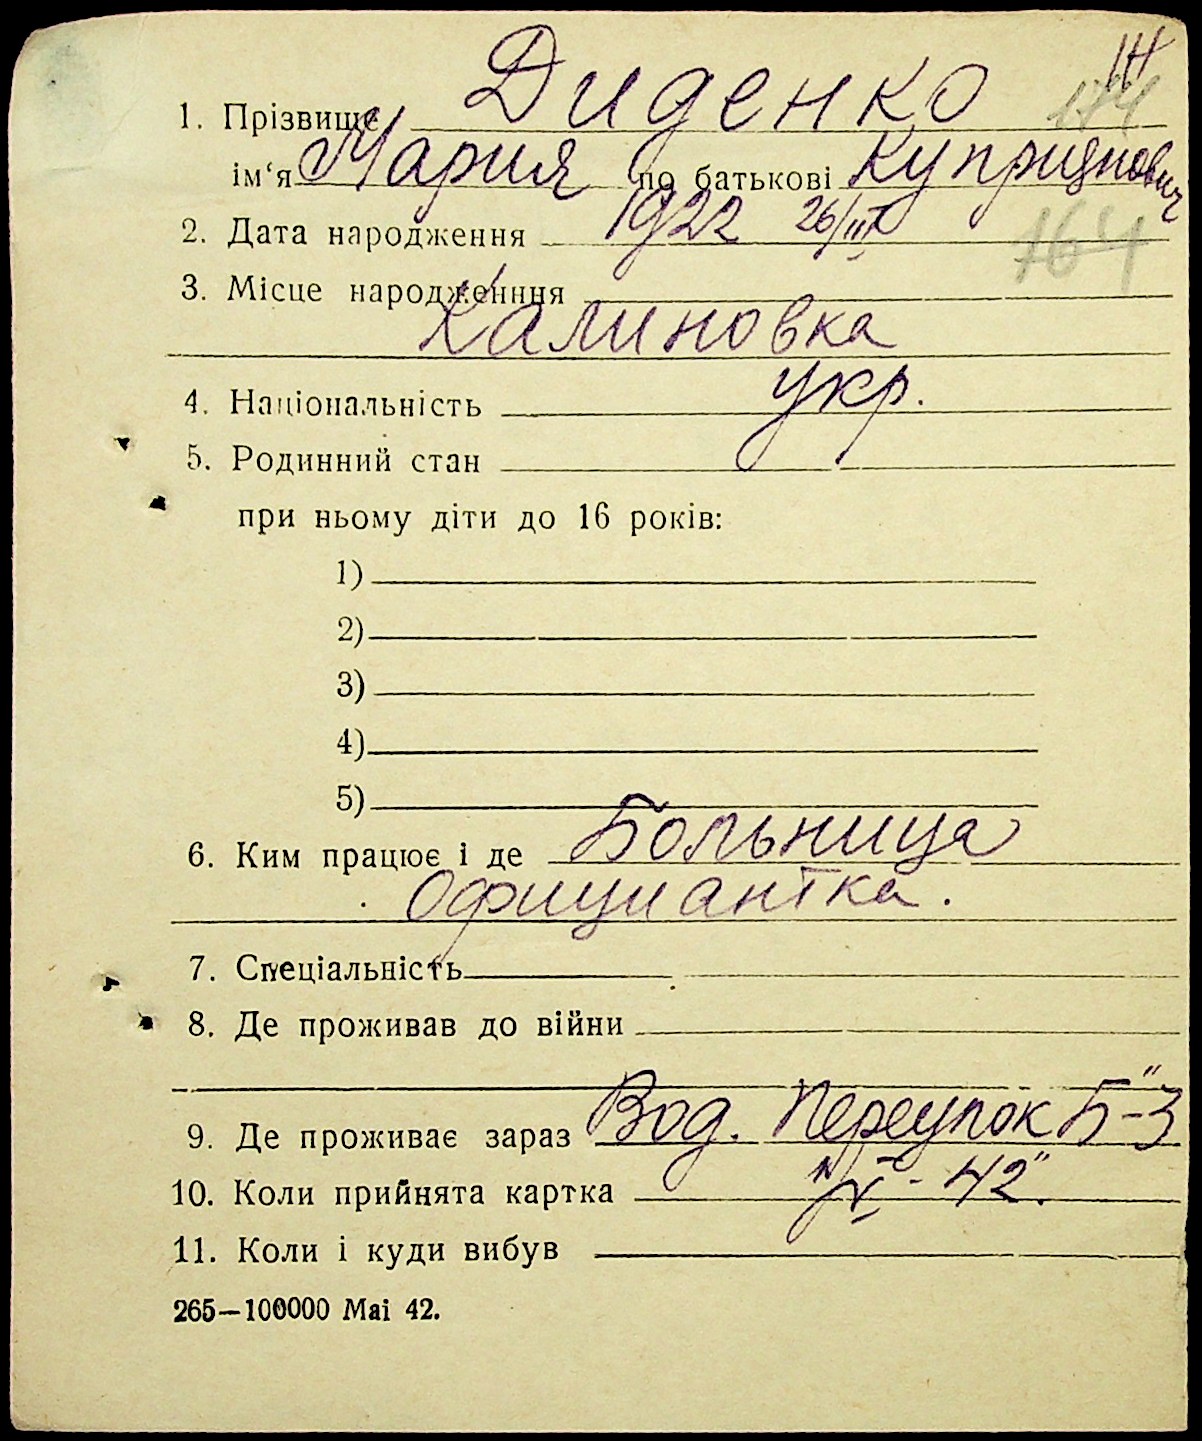 1. Прізвище Диденко
ім‘я Мария по батькові
2. Дата народження 1922 26/III
164
3. Місце народженння
Калиновка
4. Національність укр.
5. Родинний стан
при ньому діти до 16 років:
1)
2)
3)
4)
5)
6. Ким працює і де Больница
Официантка.
7. Спеціальність
8. Де проживав до війни
9. Де проживає зараз Вод. Переулок Б-3
10. Коли прийнята картка V - 42"
11. Коли і куди вибув
265—100000 Маі 42.